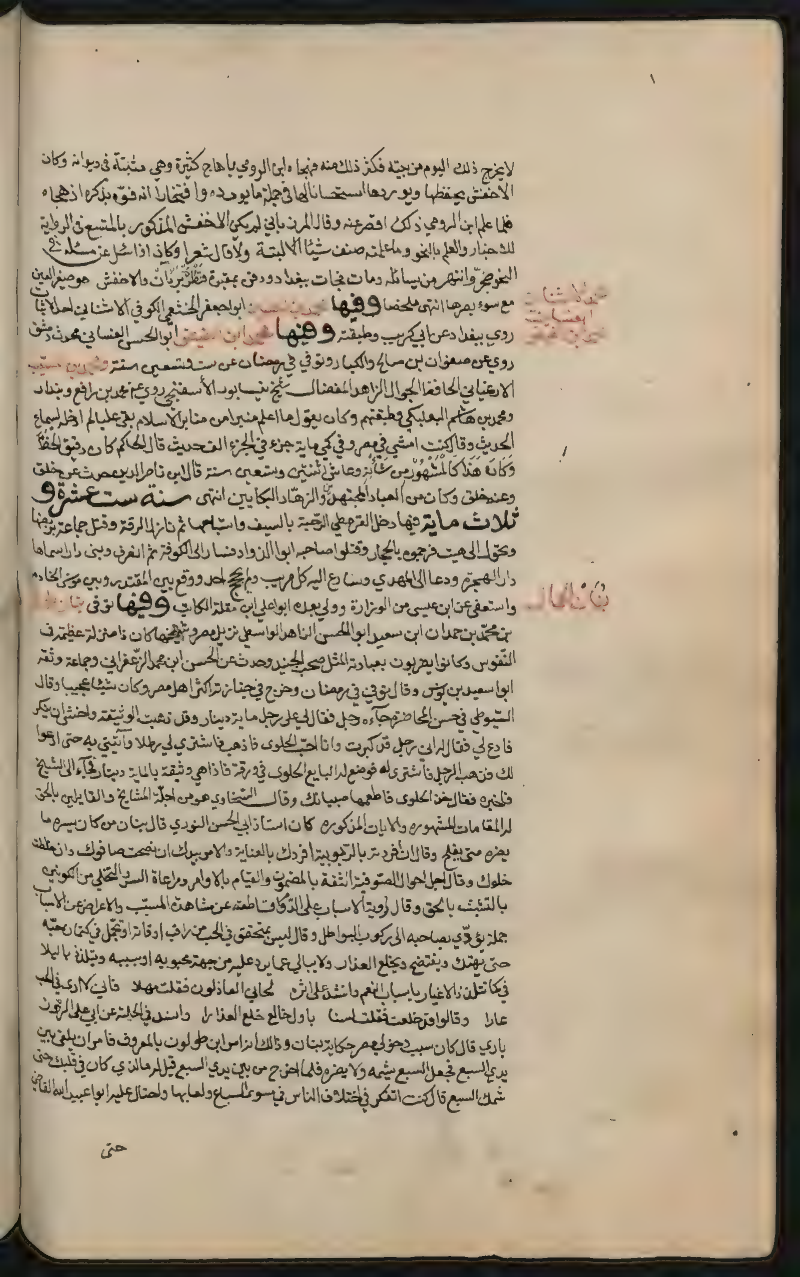 لا يخرج ذلك اليوم من بيته فكثر ذلك منه فهجاه ابن الرومي باهاج كثيرة وهي مثبتة في ديوانه وكان
الاخفش يحفظها ويوردها استحسانا لها في جملة ما يورده وافتخارا انه نوه بذكره اذ هجاه
فلما علم ابن الرومي ذلك اقصر عنه وقال المرزباني لم يكن الاخفش المذكور بالمتسع في الرواية
للاخبار والعلم بالنحو وما علمته صنف شيئا البتة ولا قال شعرا وكان اذا سئل عن مسئلة في
النحو ضجر وانتهر من يسائله ومات فجاة ببغداد ودفن بمقبرة قنطرة بردان والاخفش هو صغير العين
مع سوء بصرها انتهى ملخصا وفيها محمد بن الحسين ابو جعفر الخثعمي الكوفي الاشناني احد الاثبات
روى ببغداد عن ابي كريب وطبقته وفيها محمد ابن الفيض ابو الحسن الغساني محدث دمشق
روى عن صفوان ابن صالح والكبار وتوفي في رمضان عن ست وتسعين سنة ومحمد بن المسيب
الارغياني الحافظ الجوال الزاهد المفضال شيخ نيسابور الاسفنجي روى عن محمد بن رافع وبندار
ومحمد بن هاشم البعلبكي وطبقتهم وكان يقول ما اعلم منبرا من منابر الاسلام بقي علي لم ادخله لسماع
الحديث وقال كنت امشي في مصر وفي كمي ماية جزء في الجزء الف حديث قال الحاكم كان دقيق الخط
وكان هذا كالمشهور من شأنه وعاش اثنتين وتسعين سنة قال ابن ناصر الدين حدث عن خلق
وعنه خلق وكان من العباد المجتهدين والزهاد البكايين انتهى سنة ست عشرة و
ثلاث ماية فيها دخل القرمطي الرحبة بالسيف واستباحها ثم نازل الرقة وقتل جماعة بربضها
وتحول الى هيت فرجموه بالحجارة وقتلوا صاحبه ابو الذواد فسار الى الكوفة ثم انصرف وبنى دارا سماها
دار الهجرة ودعا الى المهدي وسارع اليه كل مريب ولم يحج احد ووقع بين المقتدر وبين مونس الخادم
واستعفى عن ابن عيسى من الوزارة وولي بعده ابو علي ابن مقلة الكاتب وفيها توفي بنان الحمال
بن محمد بن حمدان ابن سعيد ابو الحسن الزاهد الواسطي نزيل مصر وشيخها كان ذا منزلة عظيمة في
النفوس وكانوا يضربون بعبادته المثل صحب الجنيد وحدث عن الحسن ابن محمد الزعفراني وجماعة وثقه
ابو سعيد بن يونس وقال توفي في رمضان وخرج في جنازته اكثر اهل مصر وكان شيئا عجيبا وقال
السيوطي في حسن المحاضرة جاءه رجل فقال لي على رجل ماية دينار وقد ذهبت الوثيقة واخشى ان ينكر
فادع لي فقال له اني رجل قد كبرت وانا احب الحلوى فاذهب فاشتري لي رطلا وآتيني به حتى ادعوا
لك فذهب الرجل فاشترى له فوضع له البايع الحلوى في ورقة فاذا هي وثيقة بالماية دينار فجاء الى الشيخ
فاخبره فقال خذ الحلوى فاطعمها صبيانك وقال السخاوي هو من اجلة المشايخ والقايلين بالحق
له المقامات المشهوره والايات المذكوره كان استاذ ابي الحسن النوري قال بنان من كان يسره ما
يضره متى يفلح وقال ان افردته بالربوبية افردك بالعناية والامر بيدك ان نصحت صافوك وان خلطت
خلوك وقال اجل احوال الصوفية الثقة بالمضمون والقيام بالاوامر ومراعاة السر والتخلي من الكونين
بالتشبث بالحق وقال رؤية الاسباب على الدوام قاطعة عن مشاهدة المسبب والاعراض عن الاسباب
جملة يؤدي بصاحبه الى ركوب البواطل وقال ليس بمتحقق في الحب من راقب اوقاته او تحمل في كتمان حبه
حتى يتهتك ويفتضح ويخلع العذار ولا يبالي عما يرد عليه من جهة محبوبه او بسببه ويتلذذ بالبلا
في الحب كما تتلذذ الاغيار باسباب النعم وانشد على اثره لحاني العاذلون فقلت مهلا فاني لا ارى في الحب
عارا وقالوا قد خلعت فقلت لسنا باول خالع خلع العذارا واسند في الحلية عن ابي علي الروذ
باري قال كان سبب دخولي مصر حكاية بنان وذلك انه امر ابن طولون بالمعروف فامر ان يلقى بين
يدي السبع فجعل السبع يشمه ولا يضره فلما اخرج من بين يدي السبع قيل له ما الذي كان في قلبك حين
شمك السبع قال كنت اتفكر في اختلاف الناس في سور السباع ولعابها واحتال عليه ابو عبيد الله القاضي
حتى
بنان الحمال